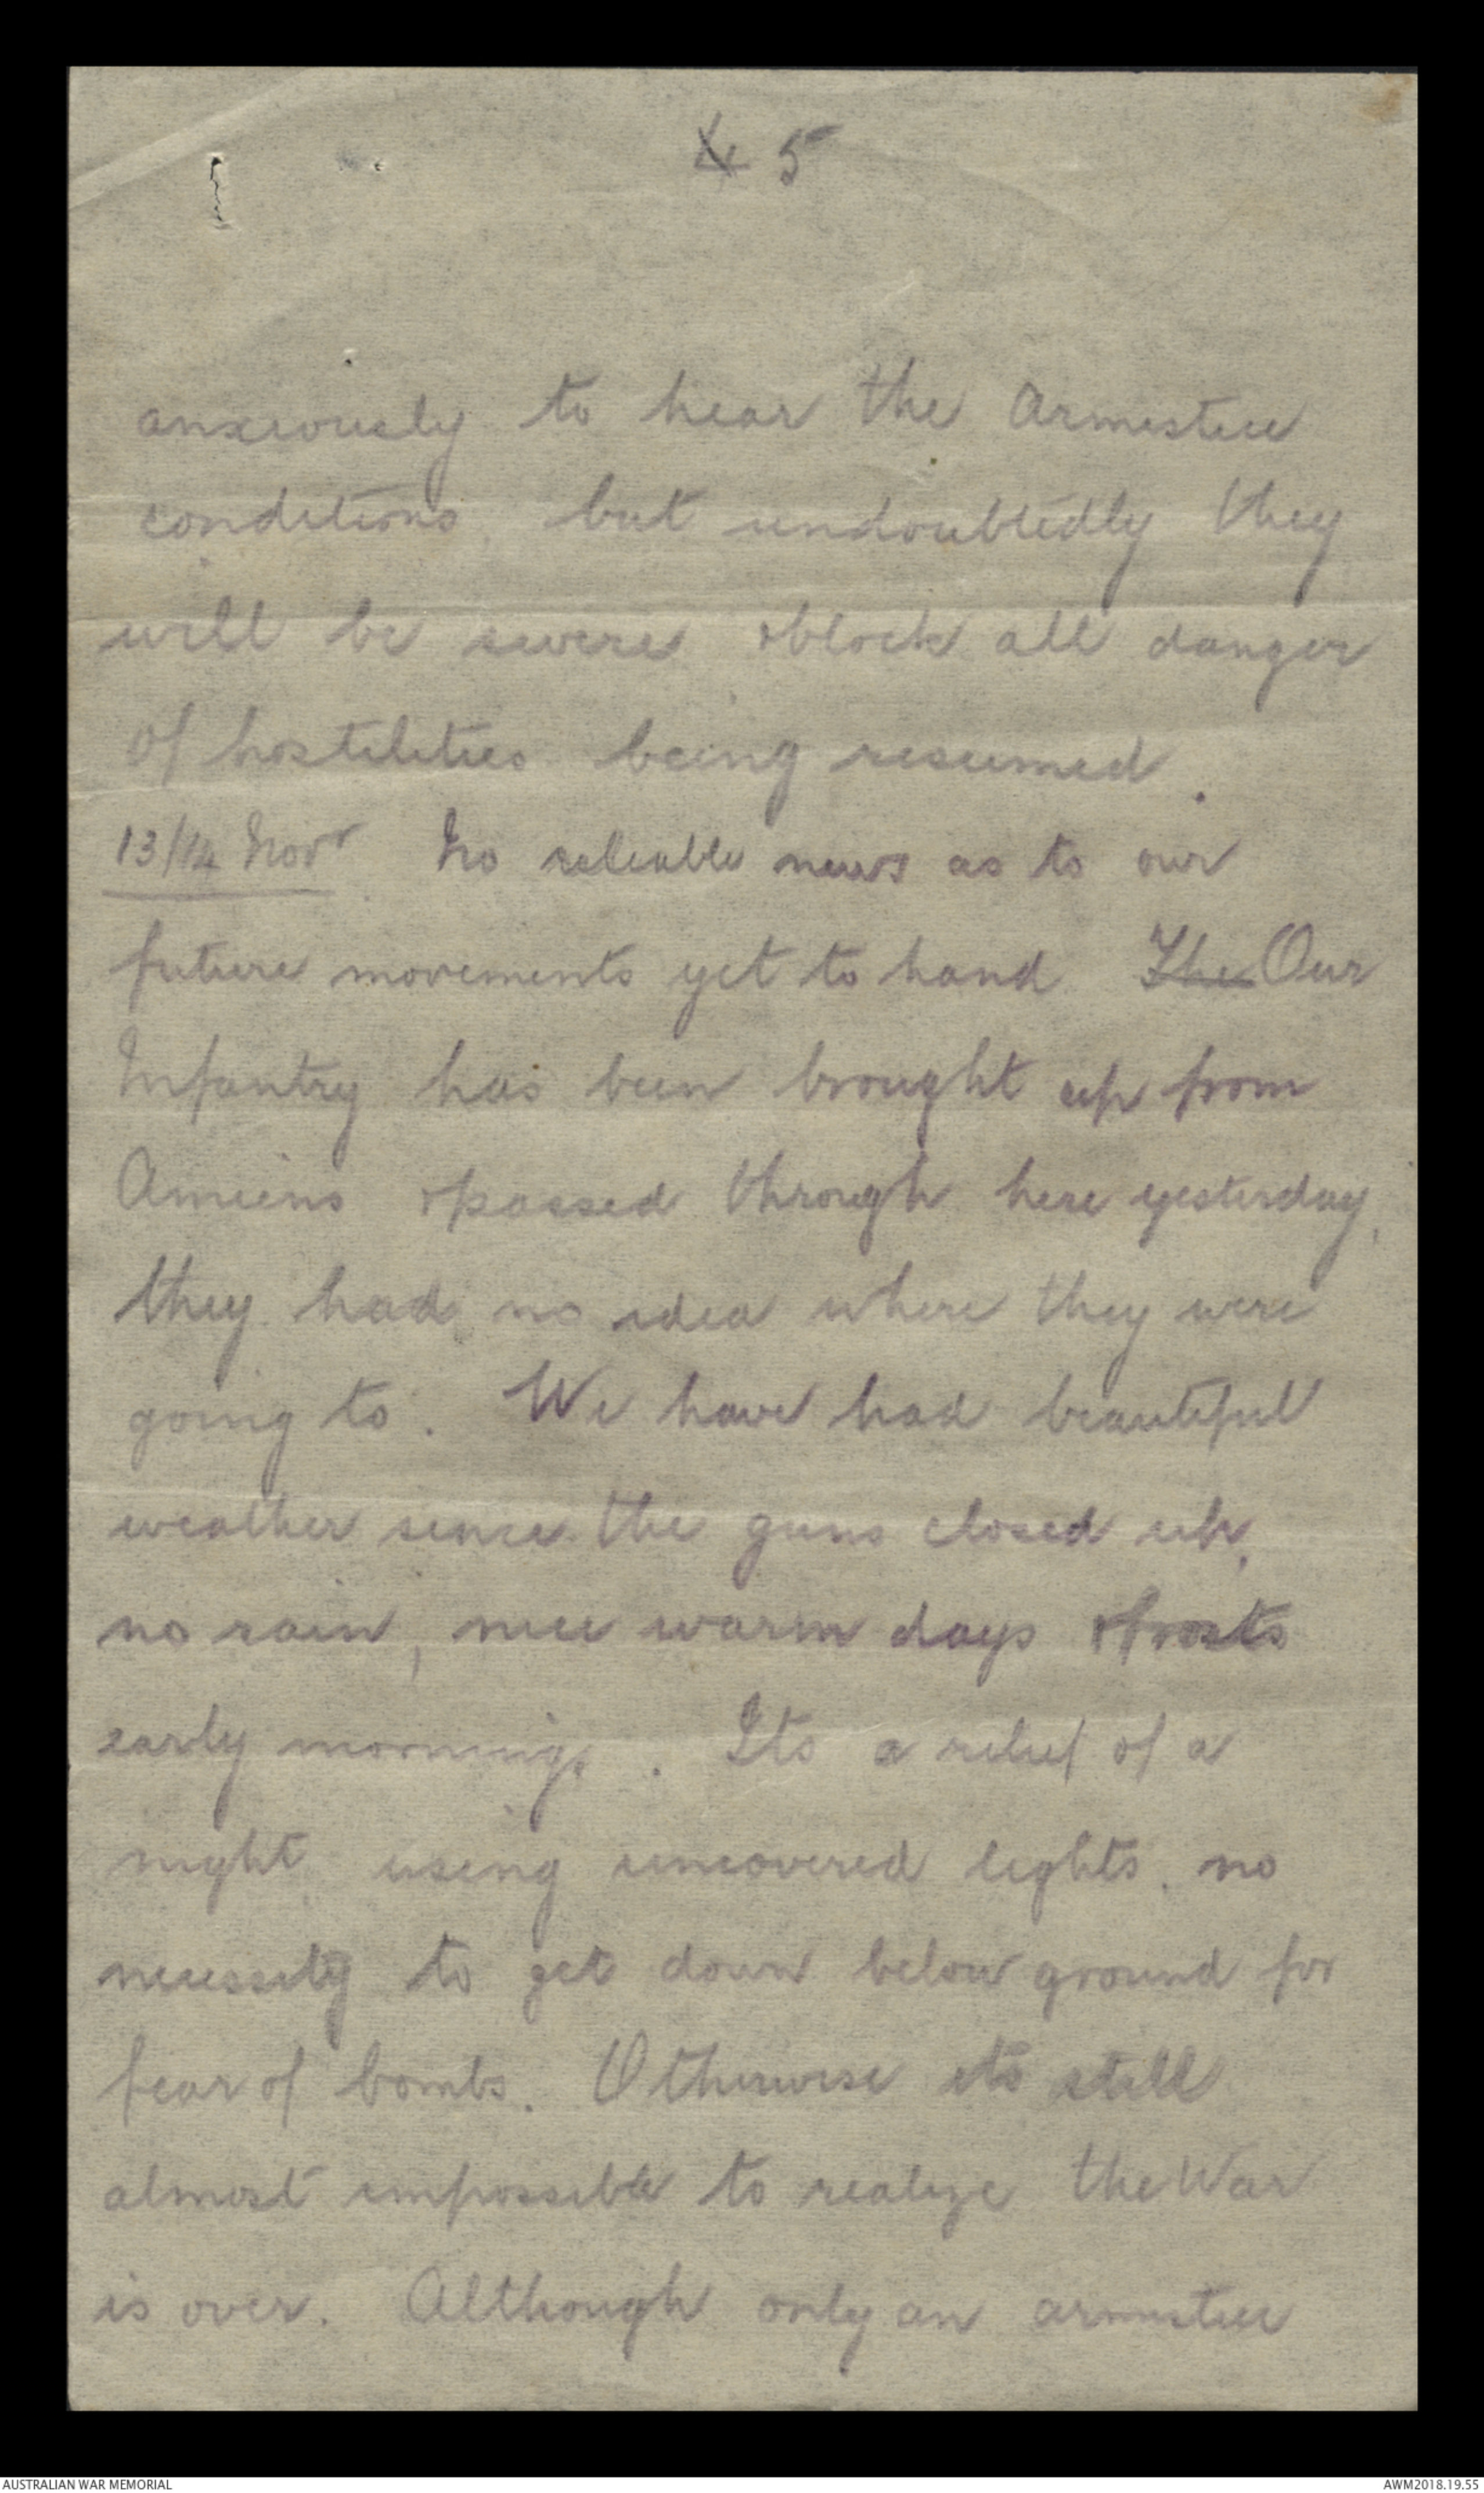 4 5
anxiously to hear the Armistice
conditions, but undoubtedly they
will be severe & block all danger
of hostilities being resumed.
13/14 Novr No reliable news as to our
future movements yet to hand The Our
Infantry has been brought up from
Amiens & passed through here yesterday,
they had no idea where they were
going to. We have had beautiful
weather since the guns closed up,
no rain, nice warm days & frosts
early mornings. Its a relief of a
night using uncovered lights, no
necessity to get down below ground for
fear of bombs. Otherwise its still
almost impossible to realize the War
is over. Although only an armistice
AUSTRALIAN WAR MEMORIAL
AWM2018.19.55